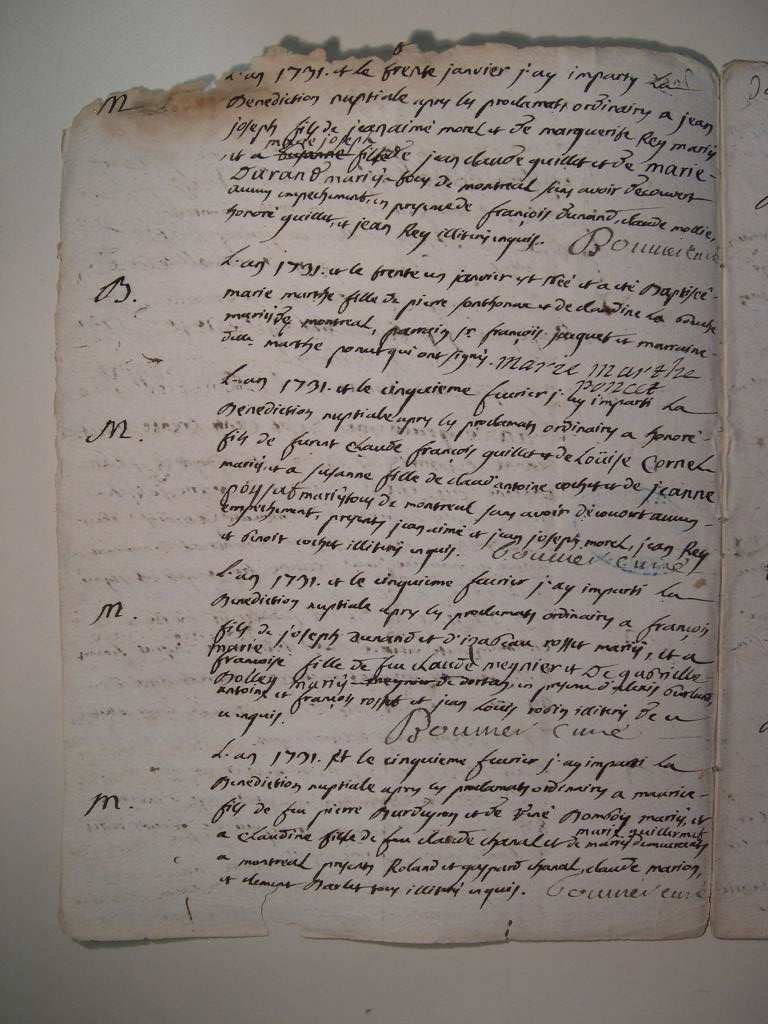 M.
L'an 1731. et le trente janvier j'ay imparty La
Benediction nuptiale apres les proclamats ordinairs a jean
joseph fils de jean aimé morel et de marguerite Rey mariés
marie joseph
et a susanne fille de jean claude guillet et de marie
Durand mariés tous de montreal sans avoir decouvert
aucun empechement, en presence de françois Durand, claude
honoré guillet, et jean Rey illiterés enquis.
Bonnet curé
B.
L'an 1731. et le trente un janvier est née et a eté Baptiseé
marie marthe fille de pierre et de claudine
mariés de montreal, parrain sr. françois jacquet et marraine
marthe poncet qui ont signés. marie marthe
poncet
M.
L'an 1731. et le cinquieme fevrier j'ay imparti La
Benediction nuptiale apres les proclamats ordinairs a honoré
fils de furent claude françois guillet et de Loüise Cornet
mariés, et a susanne fille de claud'antoine cochet et de jeanne
mariés tous de montreal sans avoir decouvert aucun
empechement, presents jean aimé et jean joseph morel, jean Rey
et benoit cochet illiterés enquis. Bonnet curé
M.
L'an 1731. et le cinquieme fevrier j'ay imparti La
Benediction nuptiale apres les proclamats ordinairs a françois
fils de joseph Durand et d'izabeau rosset mariés, et a
marie
françoise fille de feu claude meynier et De gabrielle
Bolley mariés meynier de dortan, en presence d'alexis
antoine et françois rosset et jean Loüis robin illiterés de ce
enquis. Bonnet curé
M.
L'an 1731. Et le cinquieme fevrier j'ay imparti La
Benediction nuptiale apres les proclamats ordinairs a maurice
fils de feu pierre et de mariés, et
marie guillermet
a claudine fille de feu claude chanal et de mariés demeurants
a montreal presents Roland et gaspard chanal, claude marion,
et clement Barlet tous illiterés enquis. Bonnet curé